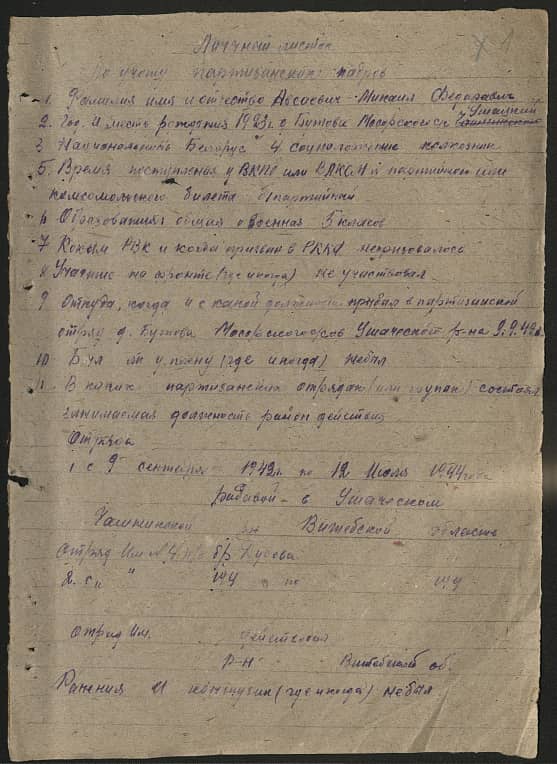 1
Личный листок
по учету партизанских кадров
1. Фамилия имя и отчество Авсаевич Михаил Федорович
2. Год и место рождения 1923г д Бутова Мосарского с/с Ушацкий
3. Национальность Беларус 4. соцположение колхозник
5. Время поступления у ВКПб или ВЛКСМ и партийного или
комсомольского билета б/партийный
6. Образования: общая и военная 5 класов
7 Каким РВК и когда призван в РККА непризывался
8 Участие на фронте (где и когда) не участвовал
9 Откуда, когда и с какой должности прибыл в партизанский
отряд д. Бутова Мосарского с/сов Ушаческого р-на 9.9.42г.
10 Был ли у плену (где и когда) небыл
11. В каких партизанских отрядах (или групах) состоял
занимаемая должность район действия
Отряда
1 с 9 сентября 1942г. по 12 Июля 1944 года
рядавой - в Ушаческом
рн Витебской область
Отряд Им №4 бр.
2. с " 194 по 194
Отряд Им. действия
р-н Витебской об.
Ранения и контузии (где и когда) небыл.